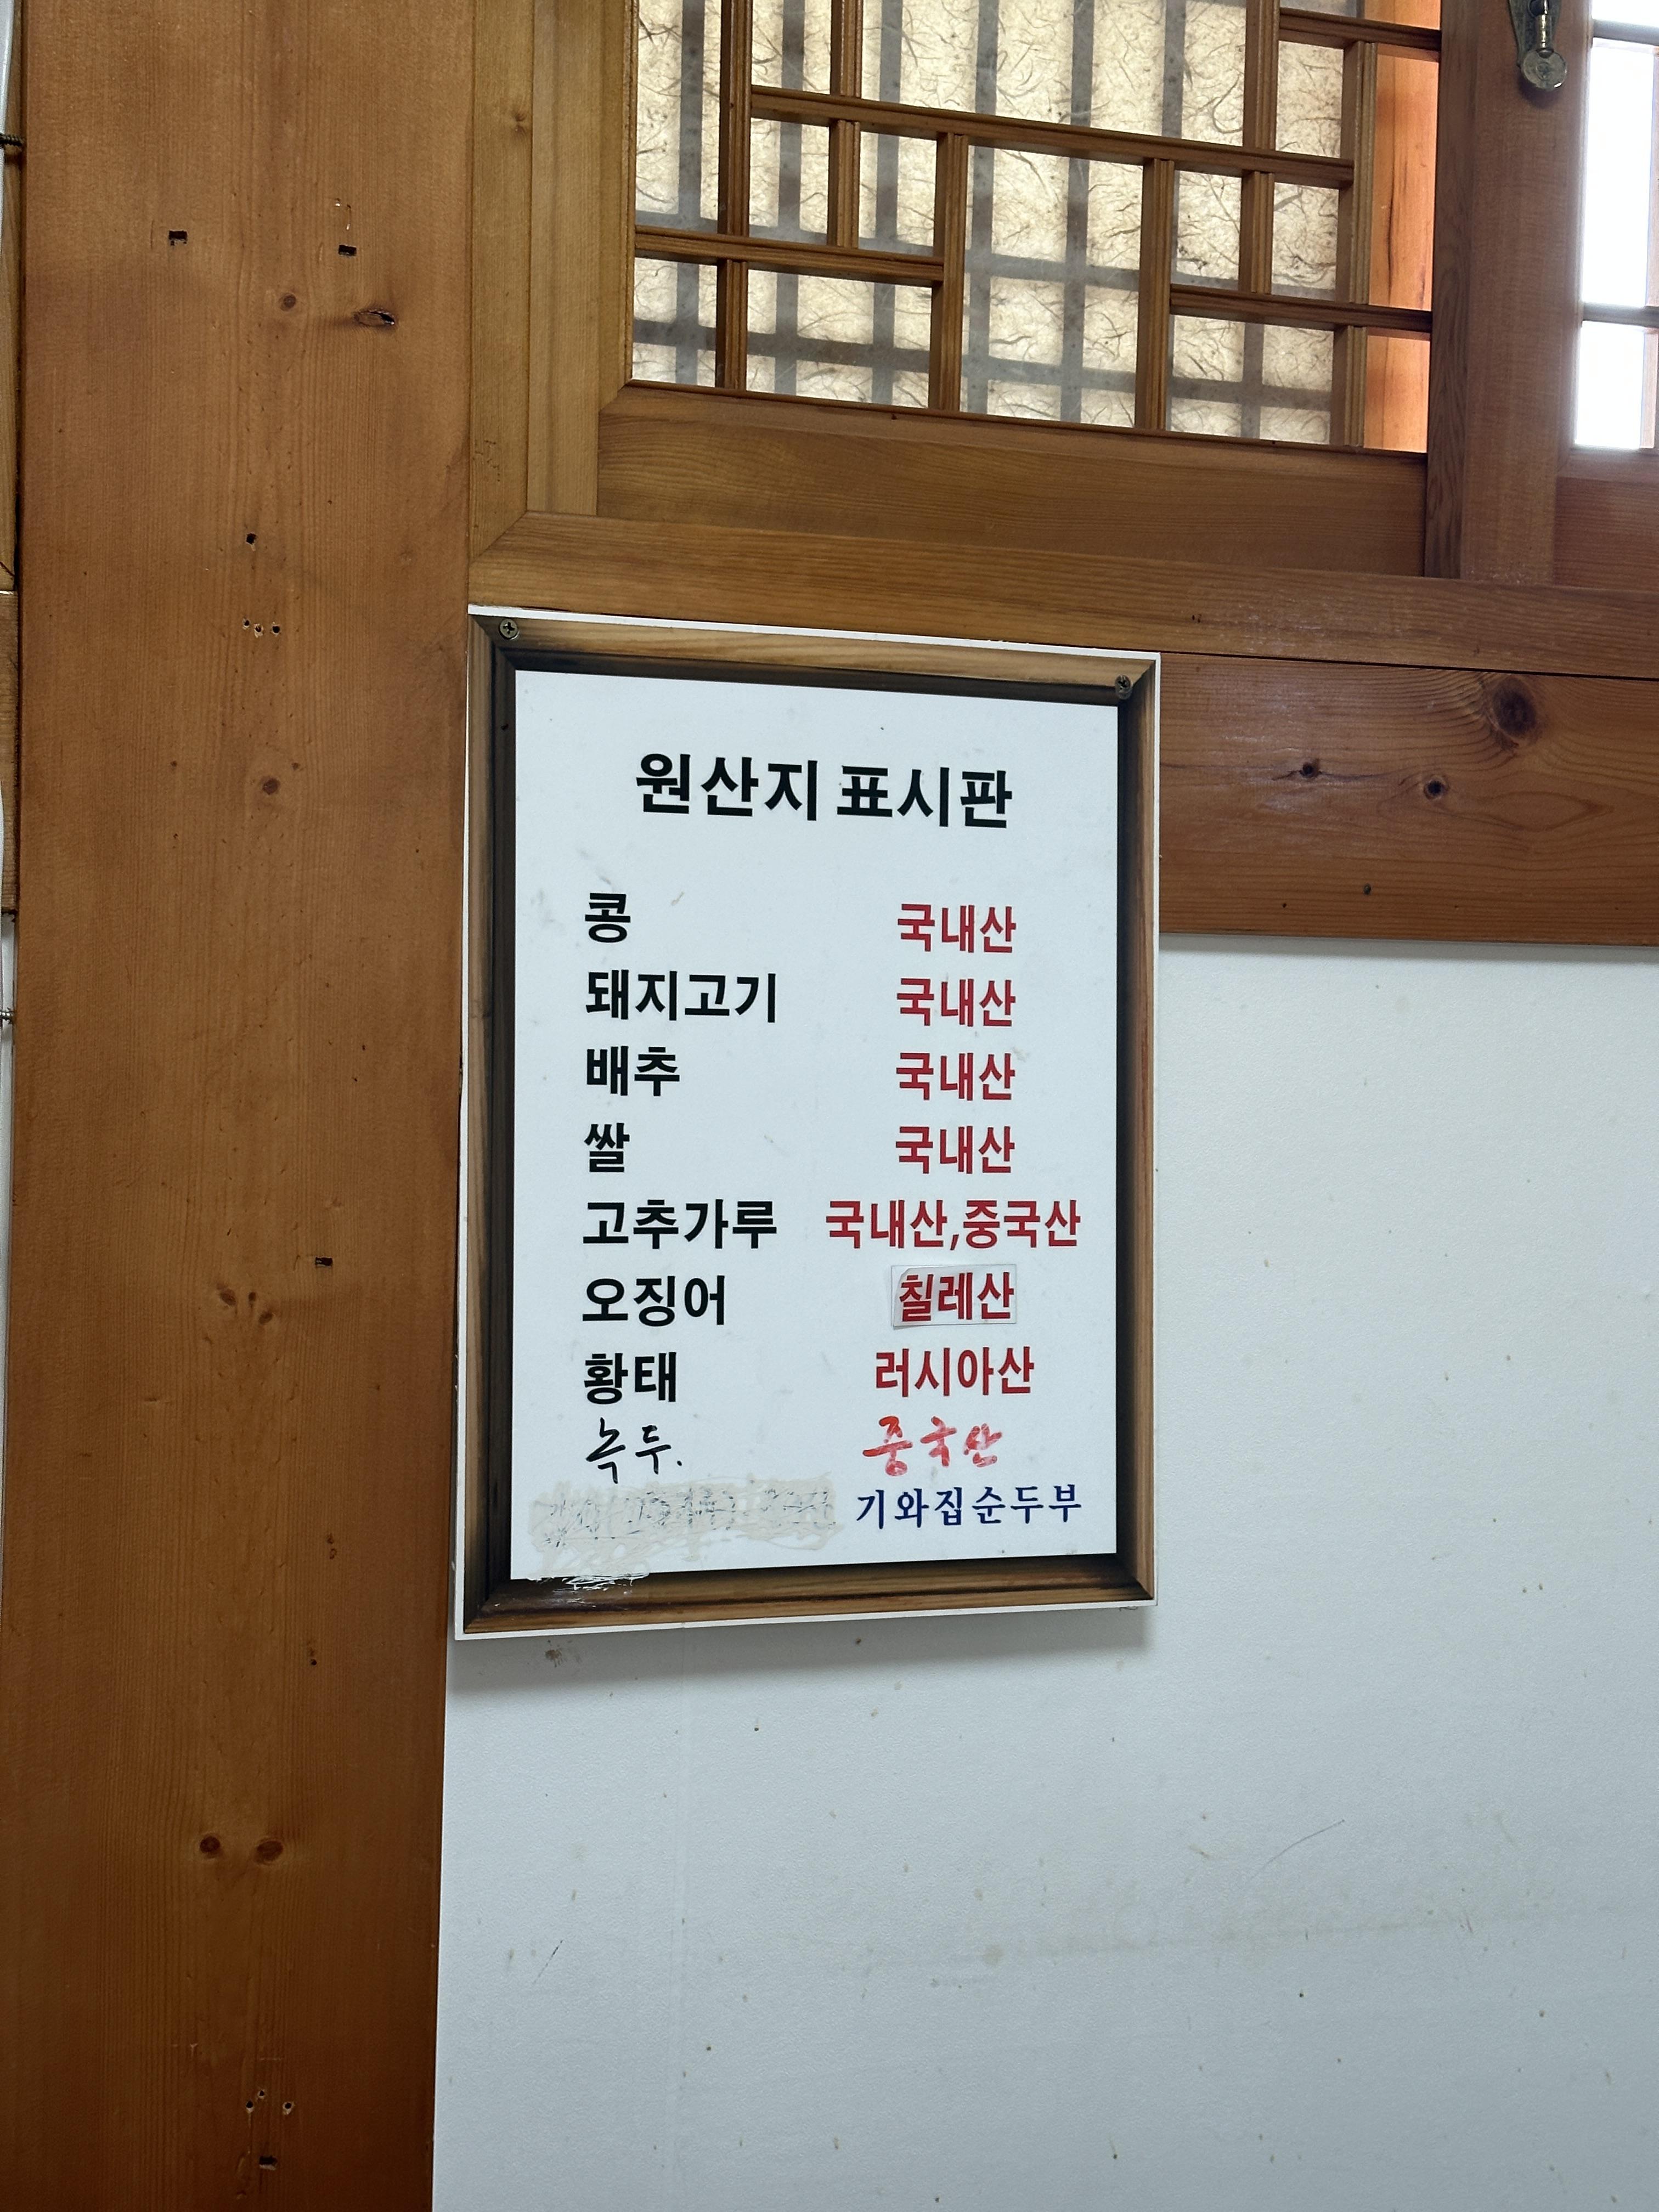 원산지 표시판
콩 국내산
돼지고기 국내산
배추 국내산
쌀 국내산
고추가루 국내산,중국산
오징어 칠레산
황태 러시아산
녹두. 중국산
기와집순두부